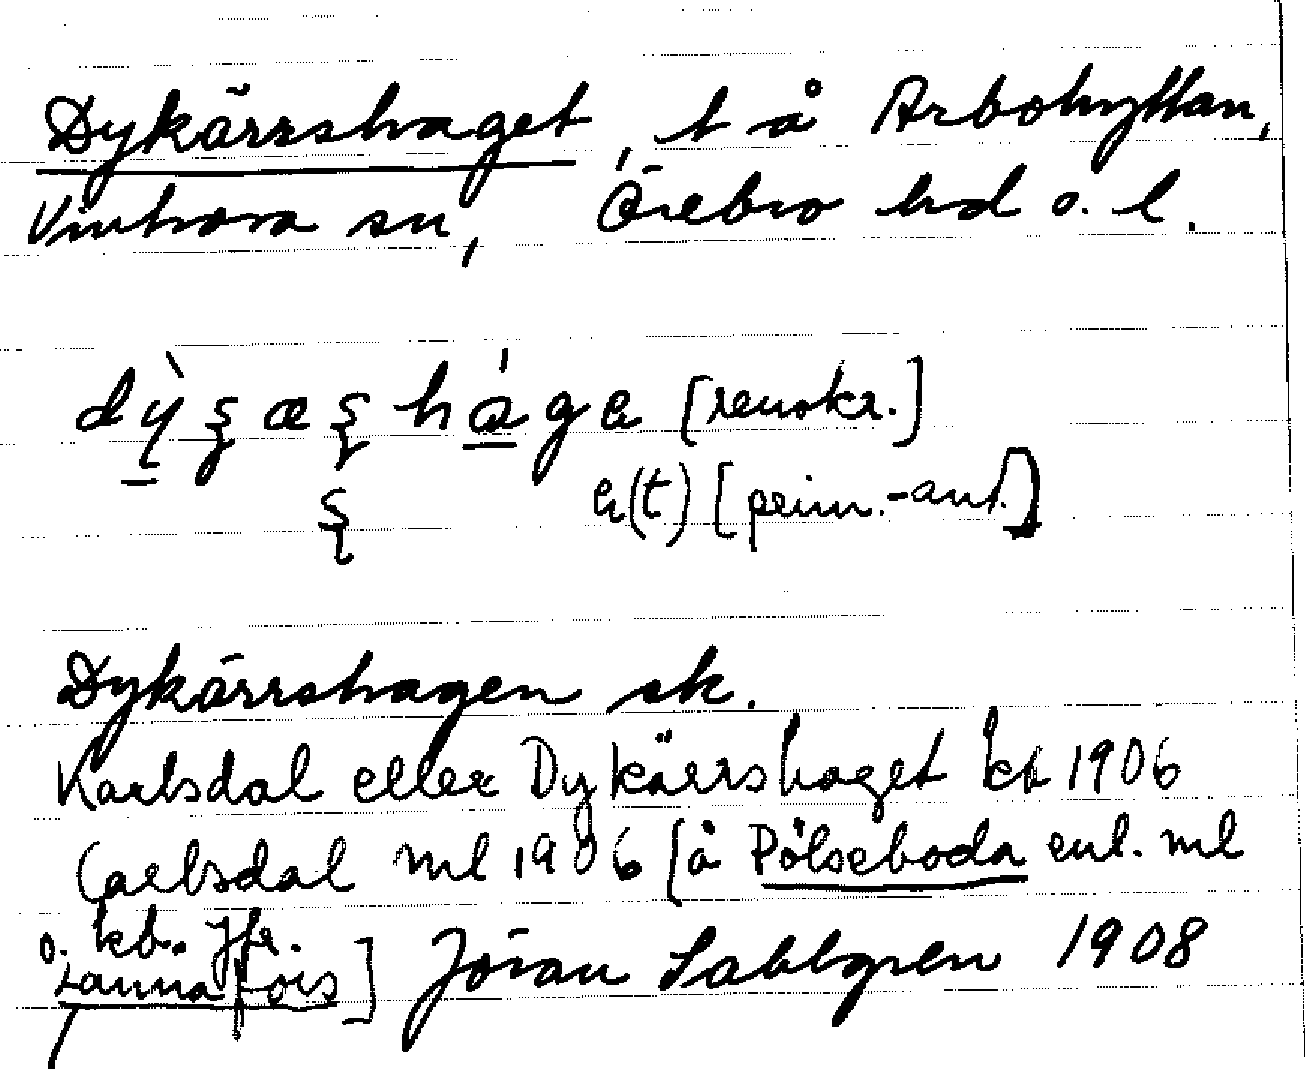 Dykärrshaget, t å Arbohyttan,
Vintrosa sn, Örebro hd o. l.
[renskr.]
(t) [prim.-ant.]
Dykärrshagen sk.
Karlsdal eller Dykärrshaget kb 1906
Carlsdal ml 1906 [å Pålseboda enl. ml
o. kb. Jfr.
Lannafors] Jöran Sahlgren 1908